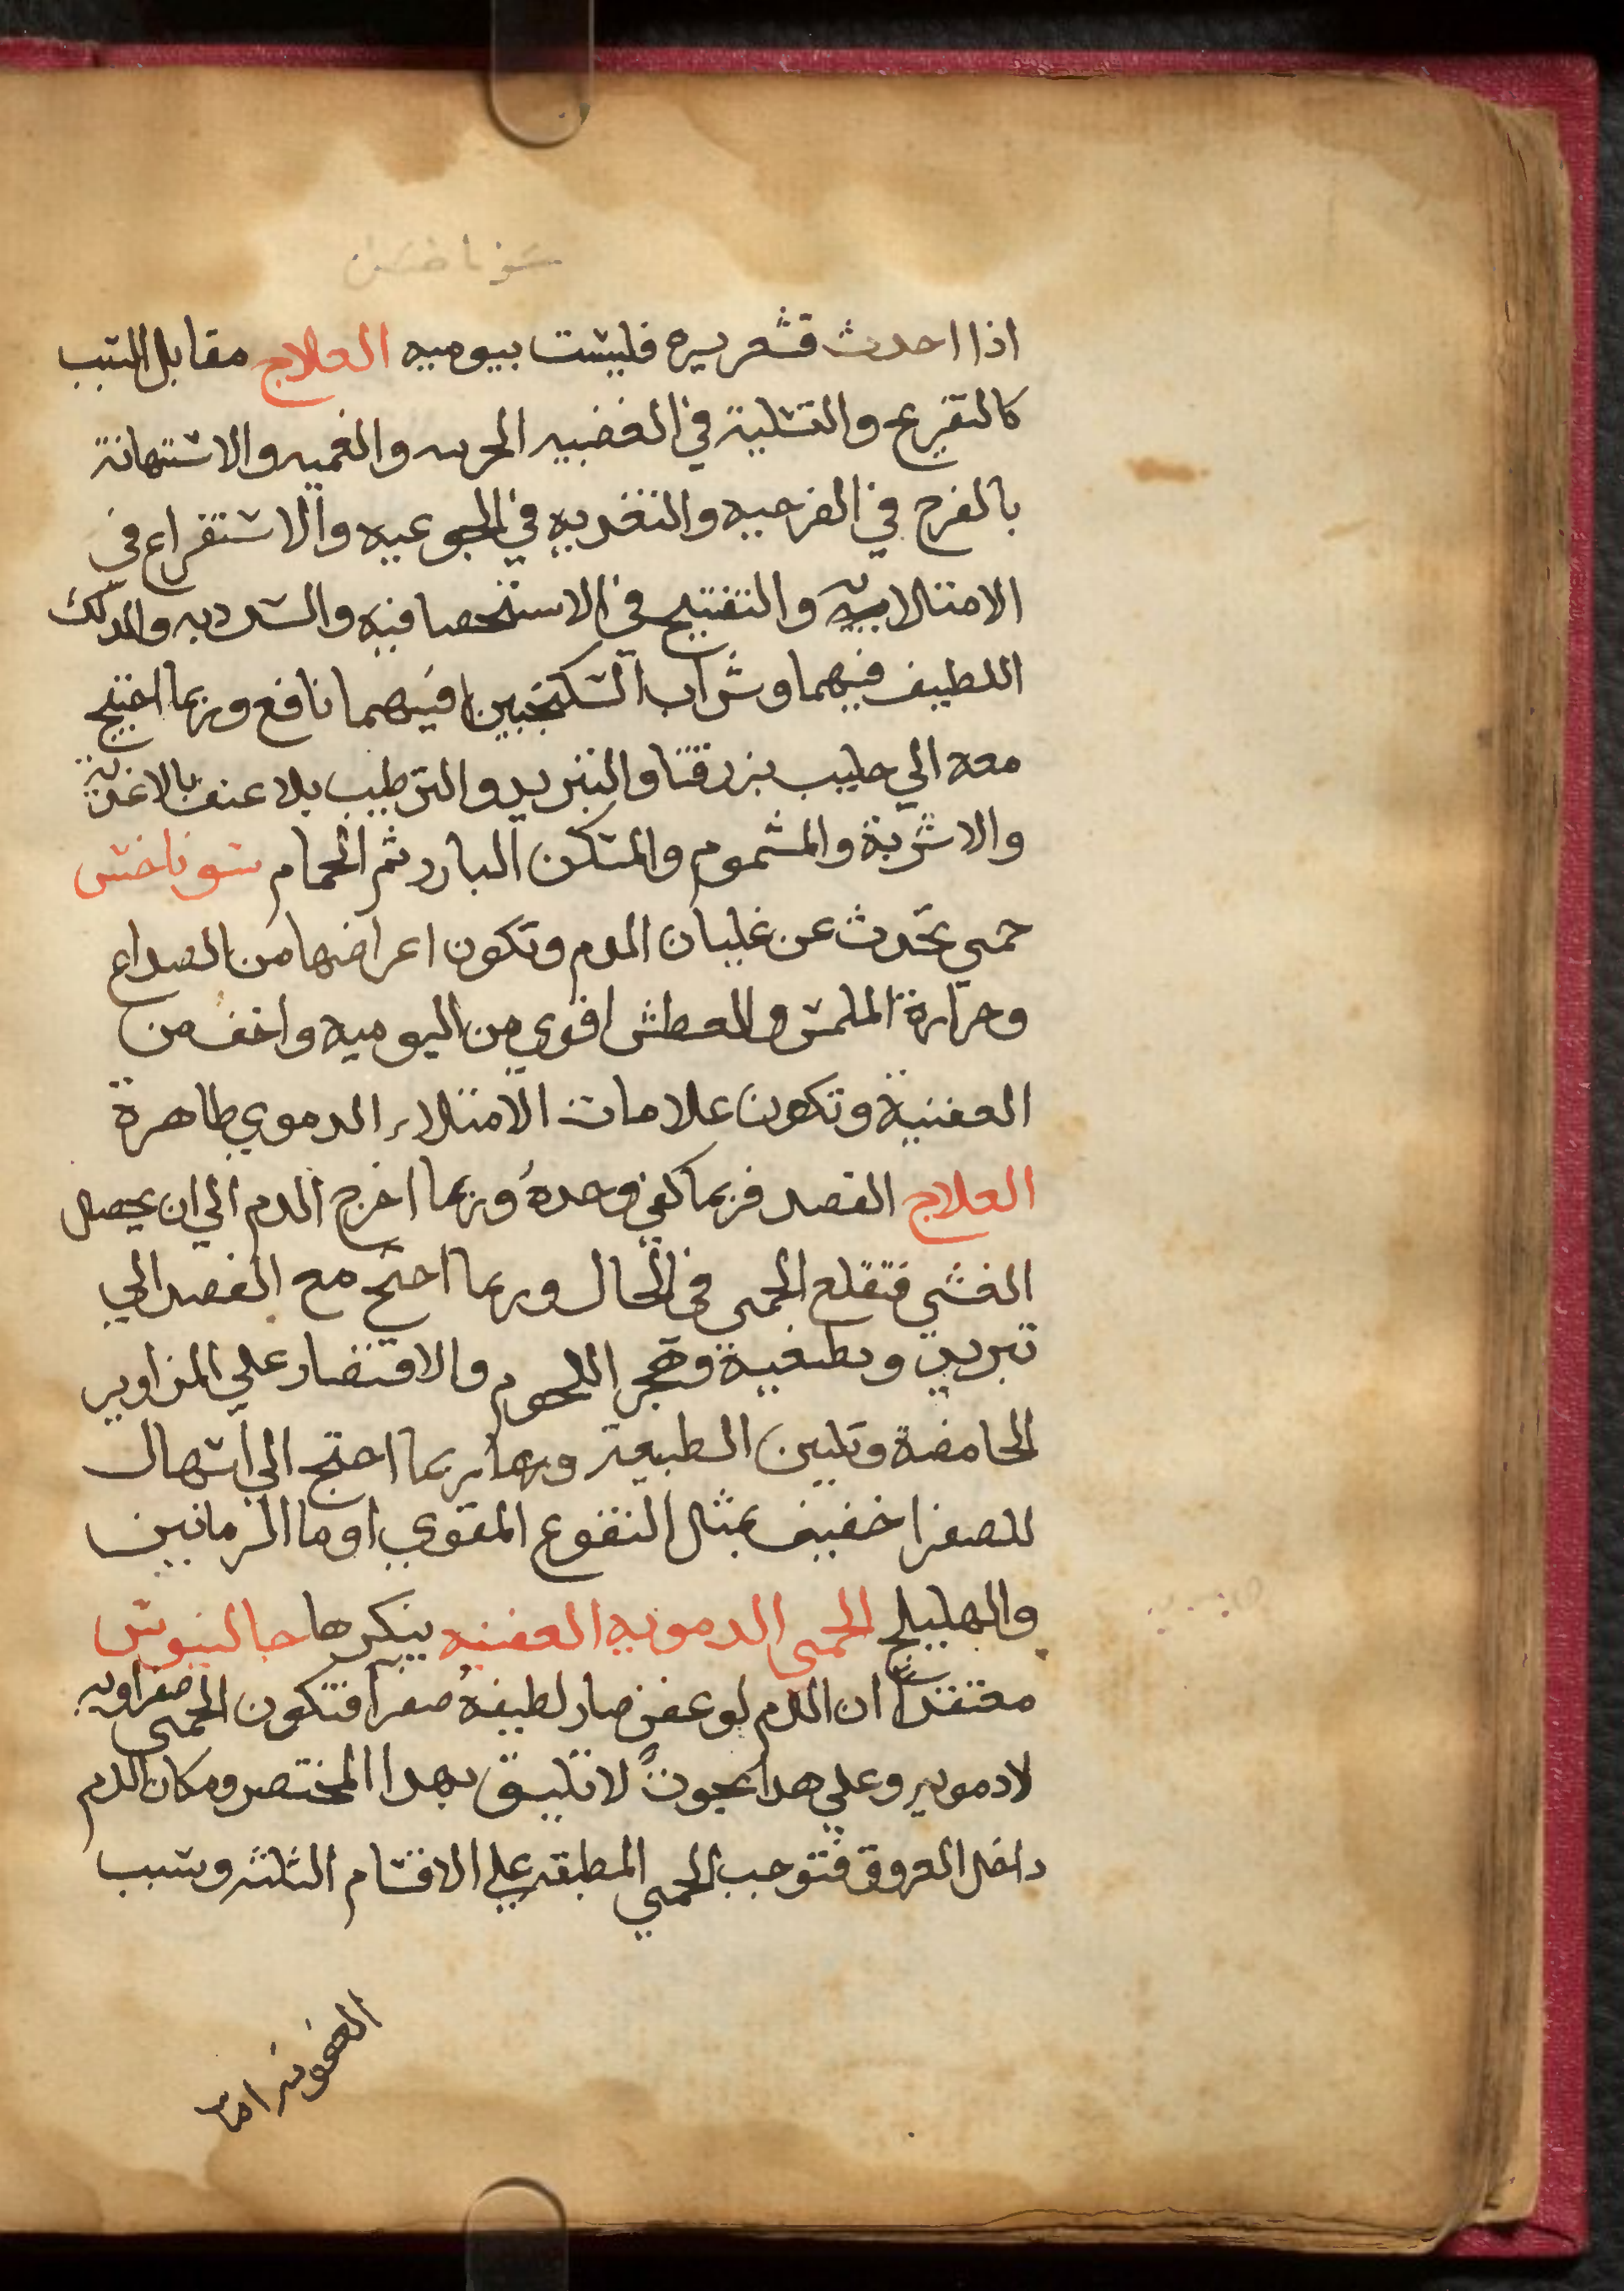 سوناخس
اذا احدث قشعريره فليست بيوميه العلاج مقابل السبب
كالتفريح والتسلية في الغضبيه الحربيه والغميه والاستهانة
بالفرح في الفرحيه والتغديه في الجوعيه والاستفراع في
الامتلاييه والتفتيح في الاستحصافيه والسدديه والدلك
اللطيف فيهما وشراب السكنجبين فيهما نافع وربما احتيج
معه الي حليب بزرقثا والتبريد والترطيب بلا عنف بالاغذية
والاشربة والمشموم والمسكن البارد ثم الحمام سوناخس
حمي تحدث عن غليان الدم وتكون اعراضها من الصداع
وحرارة الملمس والعطش اقوي من اليوميه واخف من
العفنية وتكون علامات الامتلاء الدموي ظاهرة
العلاج الفصد فربما كفي وحده وربما اخرج الدم الي ان يحصل
الغشي فتقلع الحمي في الحال وربما احتج مع الفصد الي
تبريد وتطفية وهجر اللحوم والاقتصار علي المزاوير
الحامضة وتليين الطبيعة وربما احتج الي اسهال
للصفرا خفيف بمثل النقوع المقوي او ما الرمانين
والهليلج الحمي الدمويه العفنيه ينكرها جالينوس
معتقدا ان الدم لو عفن صار لطيفه صفرا فتكون الحمي صفراويه
لا دمويه وعلي هدا بحوث لا تليق بهدا المختصر ومكان الدم
داخل العروق فتوجب الحمي المطبقه علي الاقسام الثلثه وسبب
العفونه اما